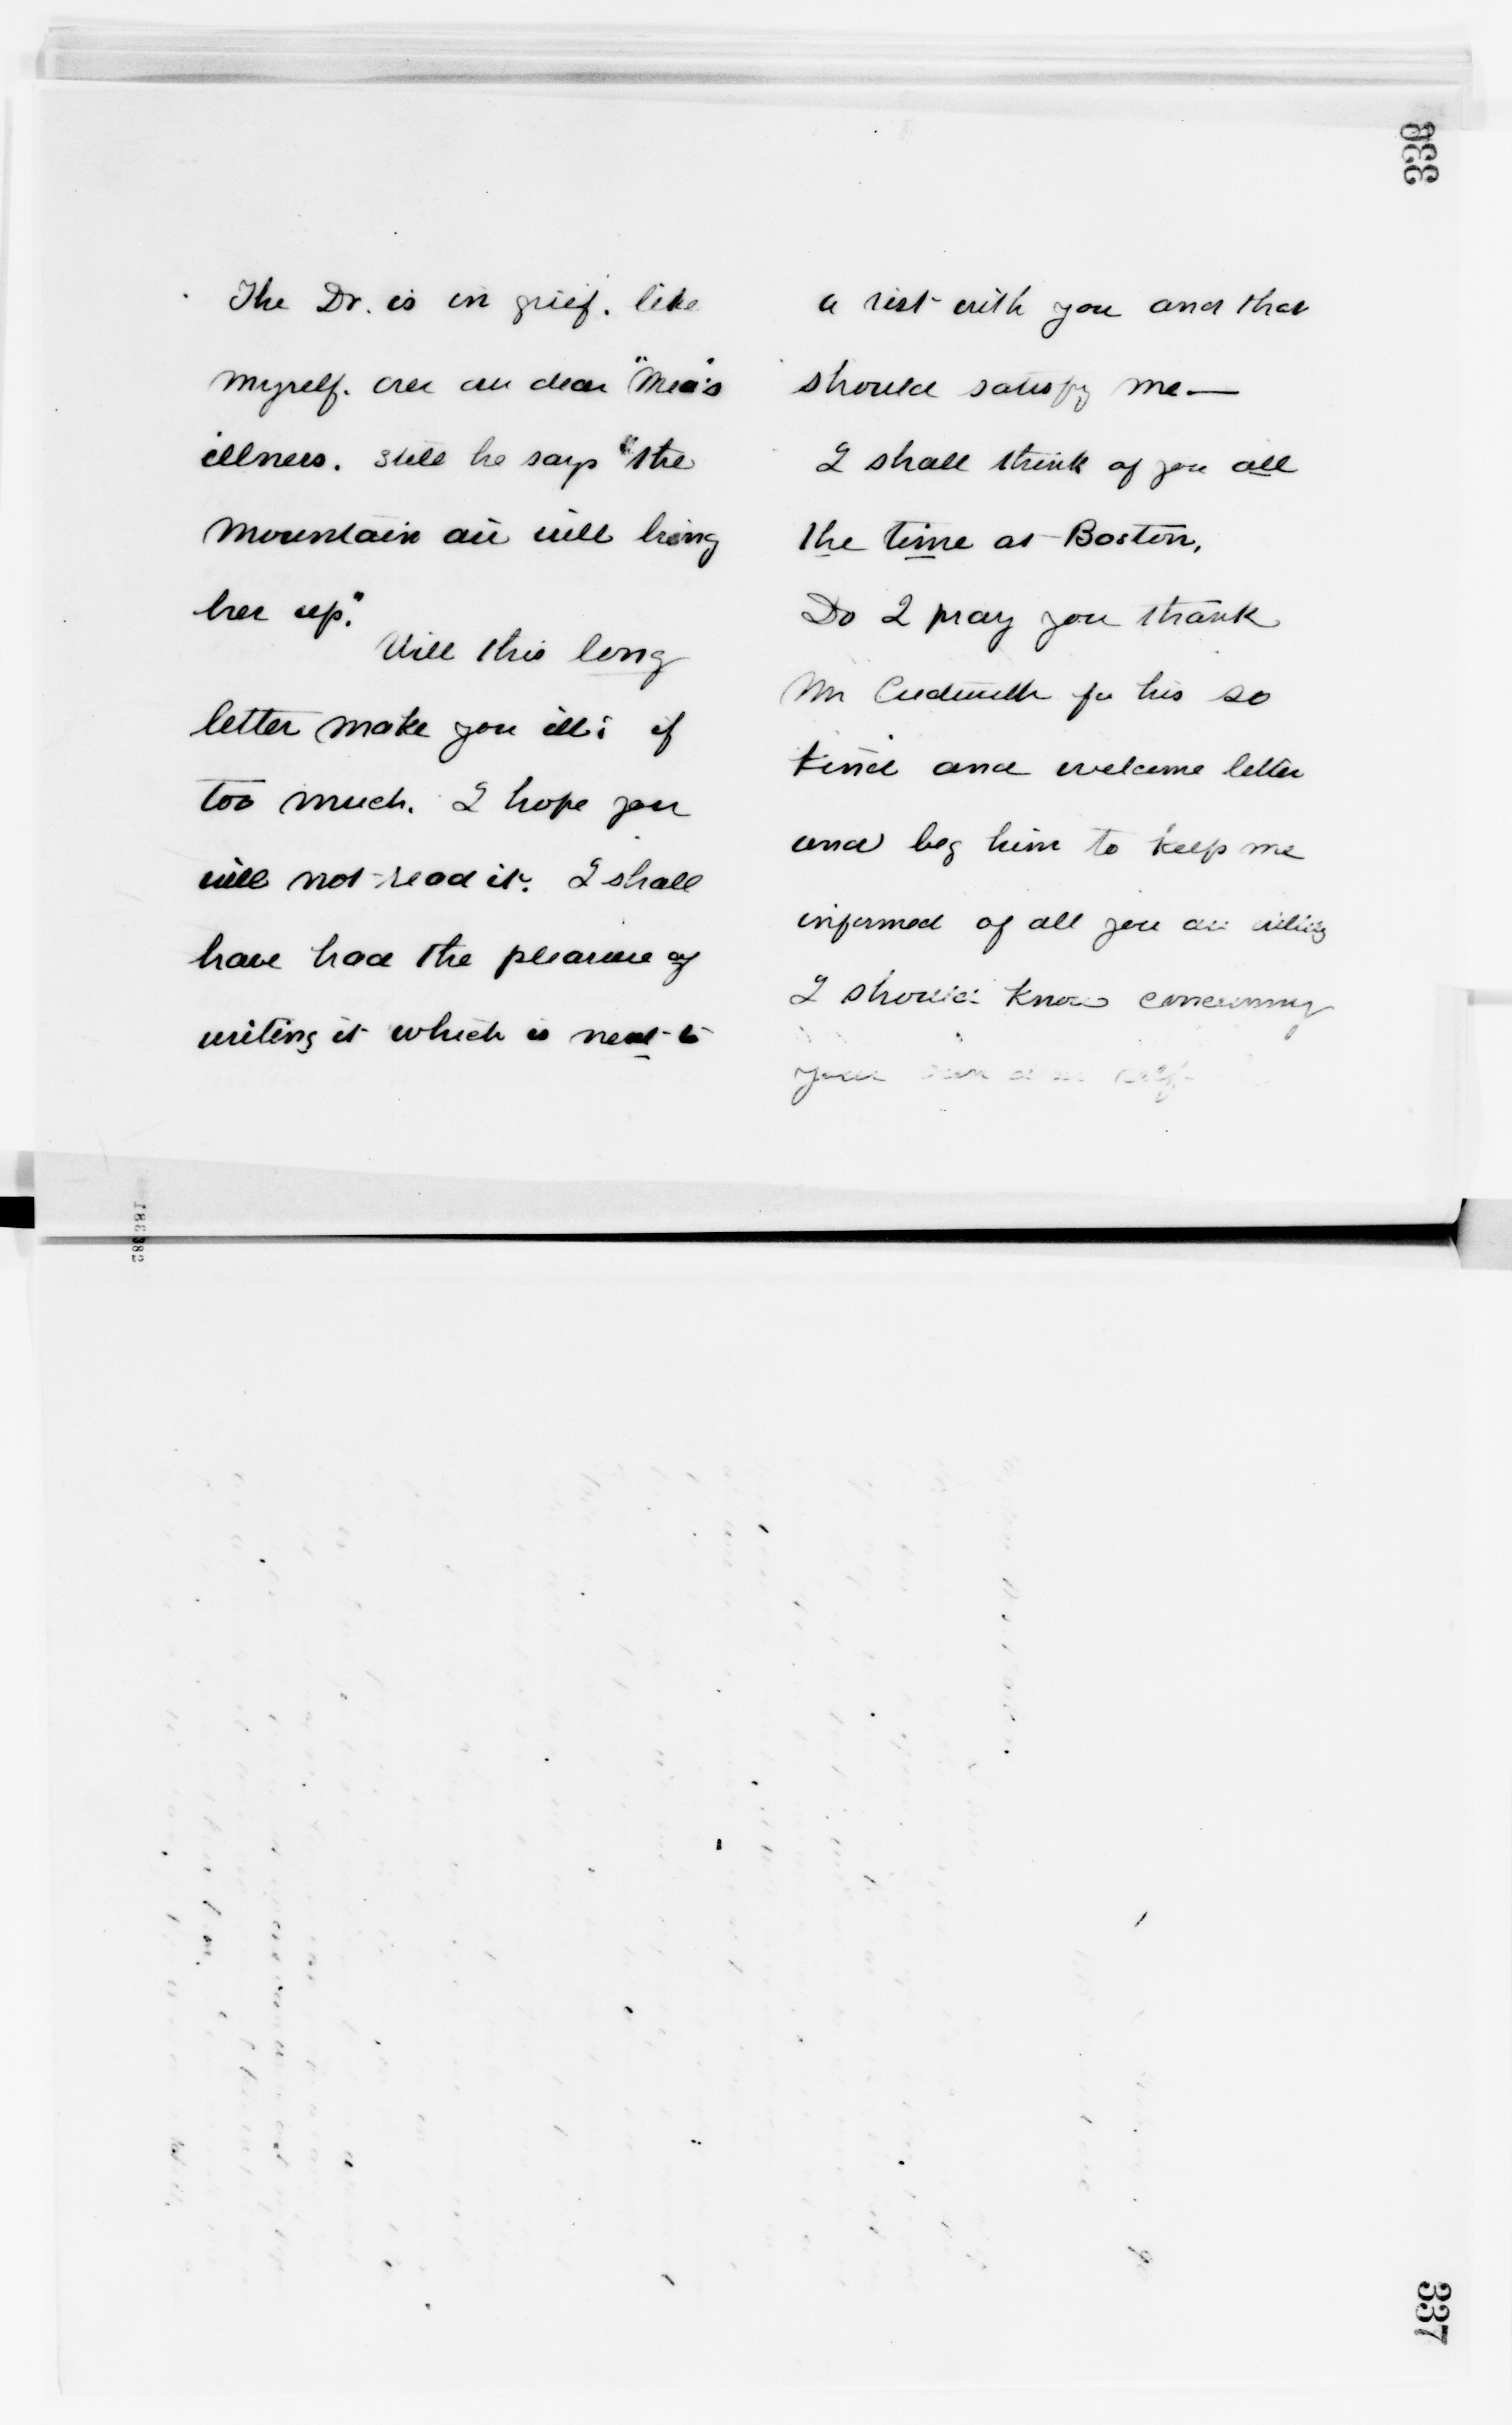 336
The Dr. is in grief. like
myself. over our dear "Mea's"
illness. still he says "the
mountain air will bring
her up."
Will this long
letter make you ill; if
too much. I hope you
will not read it. I shall
have had the pleasure of
writing it which is next to
a visit with you and that
should satisfy me—
I shall think of you all
the time at Boston.
Do I pray you thank
Mr for his so
kind and welcome letter
and beg him to keep me
informed of all you are willing
I should know concerning
your own self
337